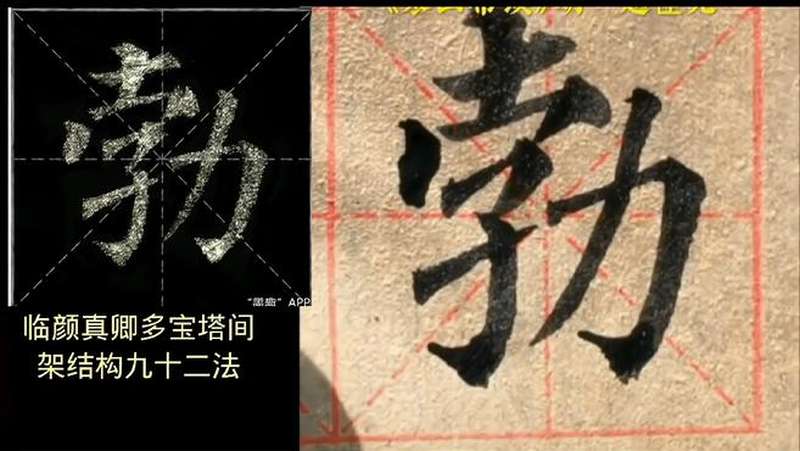 勃
勃
"墨趣" APP
临颜真卿多宝塔间
架结构九十二法